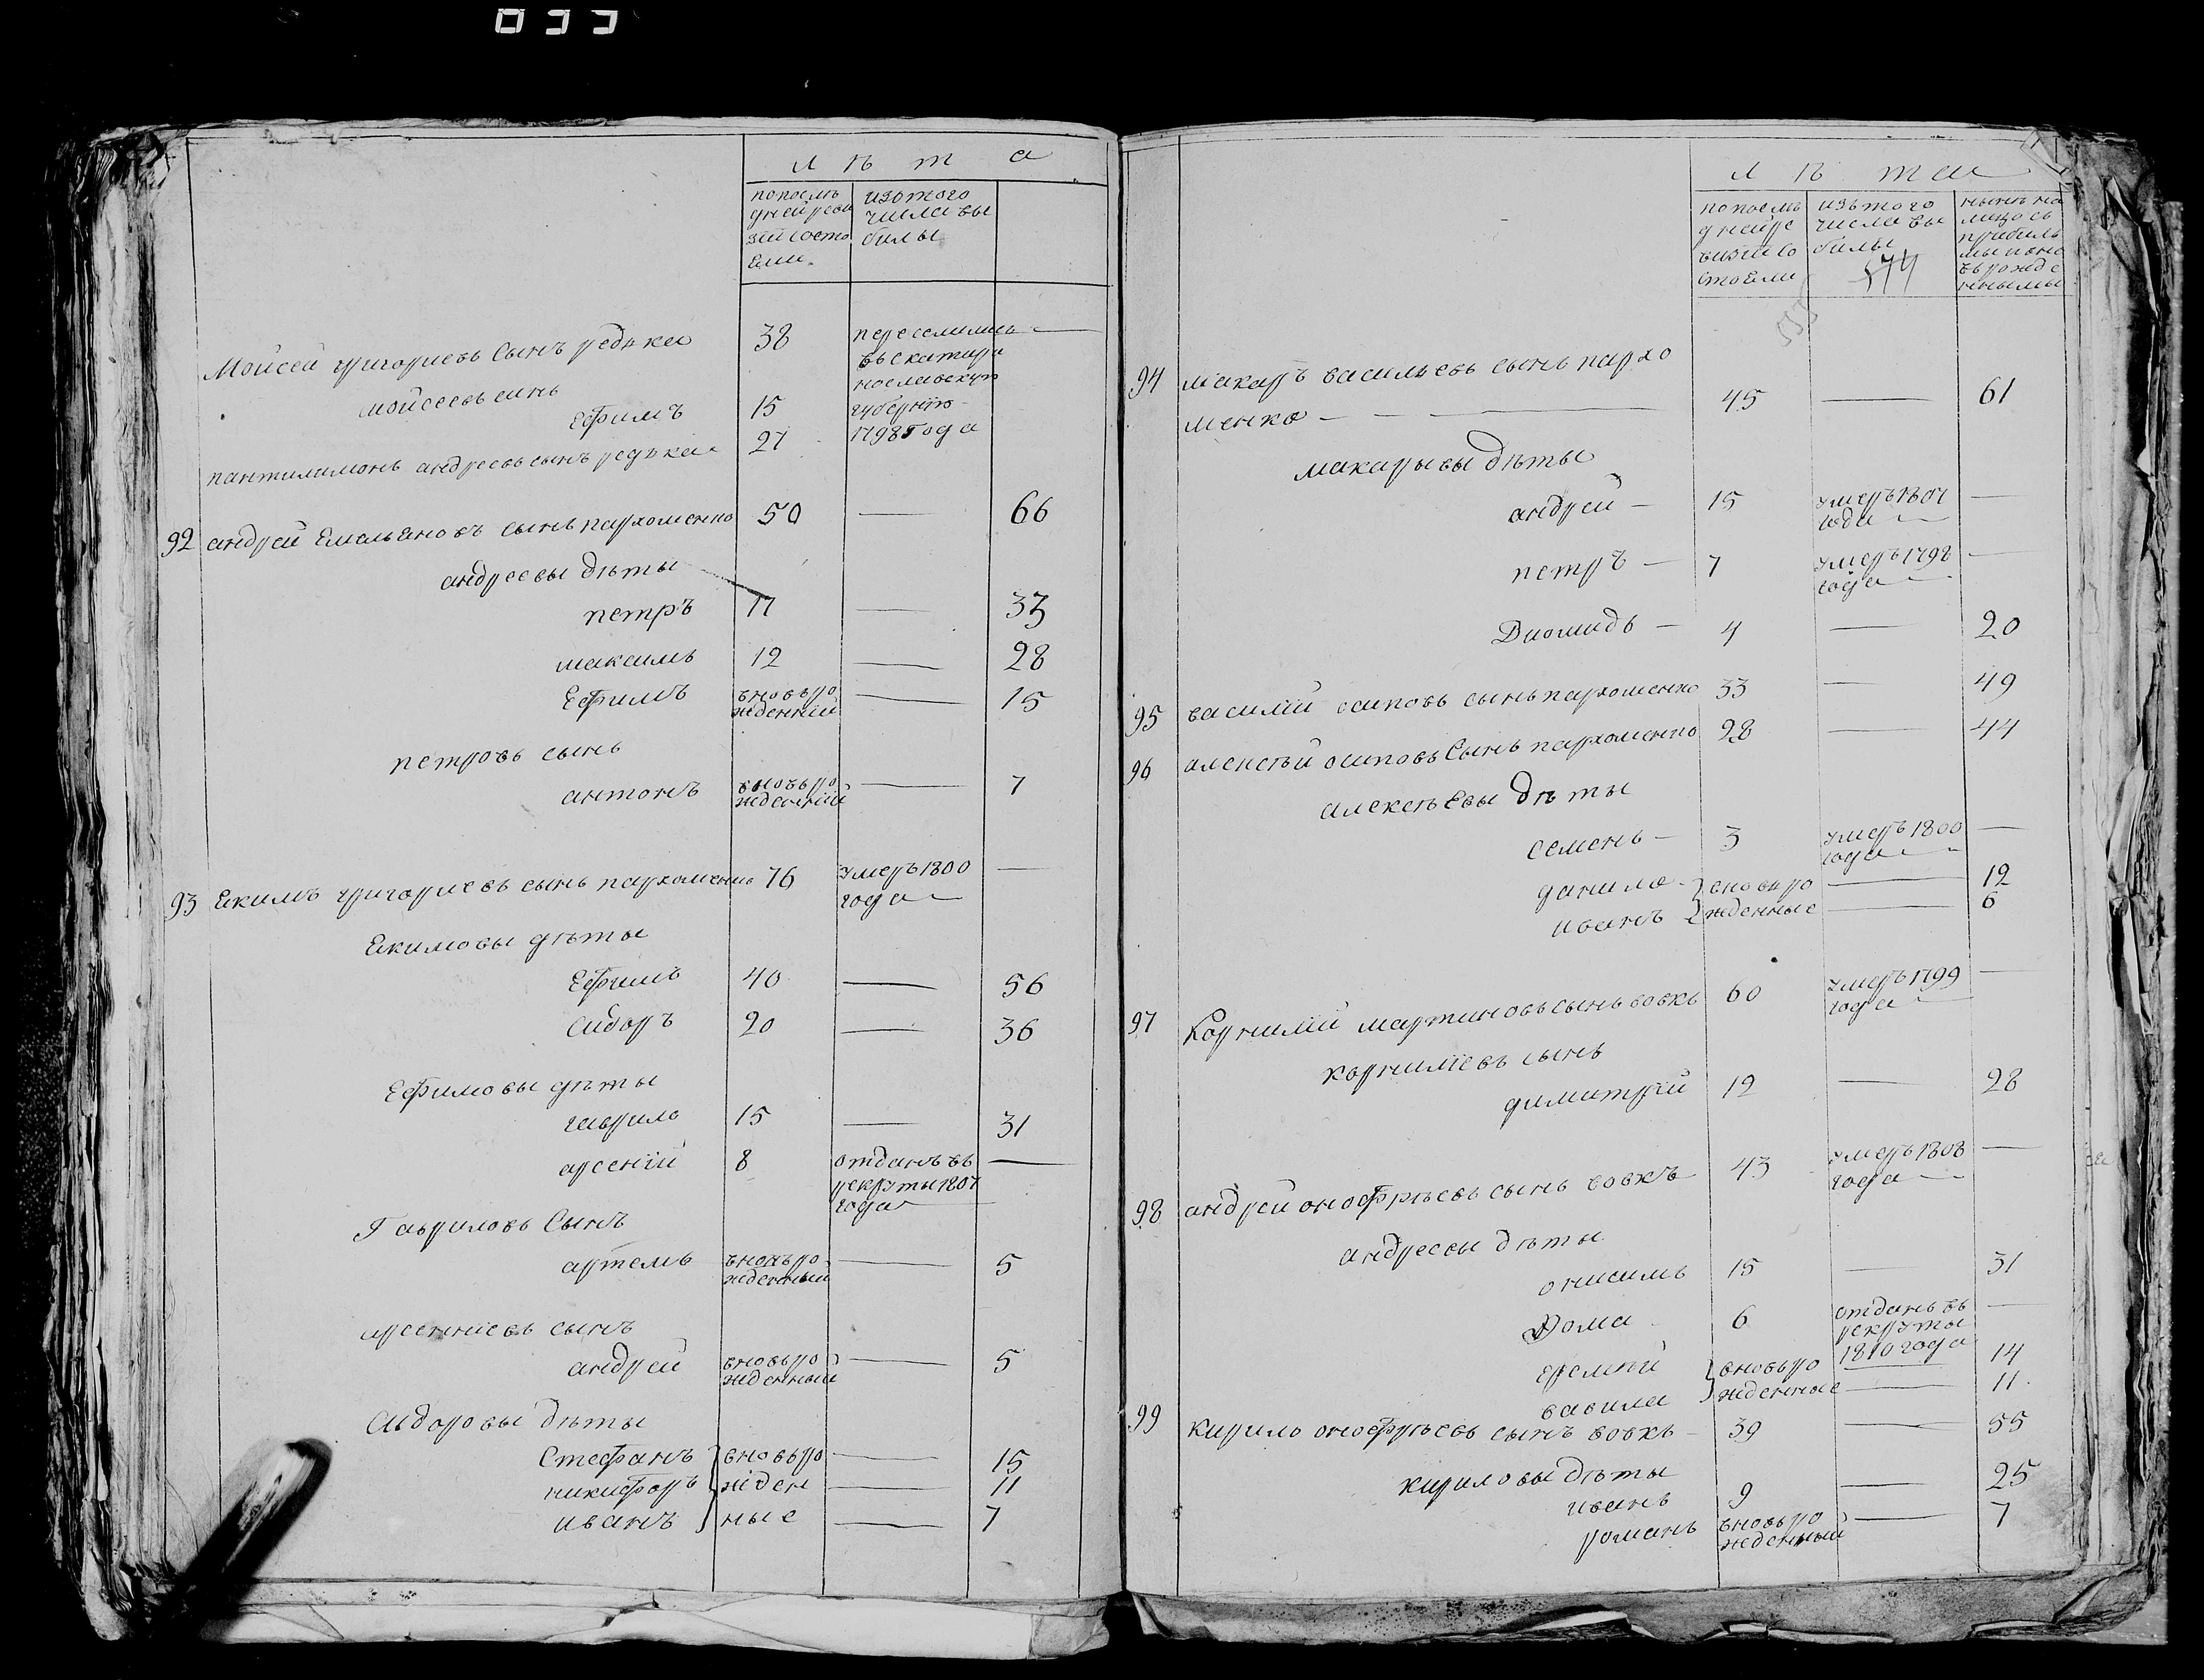 033
лѣта
попослѣ дней реви зіи состо яли
изтого числа вы были
Мойсей григориевъ Сынъ редька 38 переселились
въ екатири
нославскую
мойсеевъ синъ
Ефимъ 15 губернѣю
1798 года
пантилимонъ андреевъ сынъ редька 27
92 андрей Емельяновъ сынъ пархоменко 50 — 66
андреевы дѣты
петръ 17 — 33
максимъ 12 — 28
Ефимъ вновь ро
жденній — 15
петровъ сынъ
антонъ вновь ро
жденній — 7
93 Екимъ григориевъ сынъ пархоменко 76 умеръ 1800
года —
Екимовы дѣты
Ефимъ 40 — 56
Сидоръ 20 — 36
Ефимовы дѣты
гаврило 15 — 31
арсеній 8 отданъ въ
рекруты 1807
года —
Гавриловъ Сынъ
артемъ вновь ро
жденный — 5
арсенніевъ сынъ
андрей вновь ро
жденный — 5
Сидоровы дѣты
Стефанъ вновь ро — 15
никифоръ жден — 11
иванъ ные — 7
лѣта
попослѣ дней ре визіи со стояли
изъ того числа вы были
нынѣ на лицо съ прибыль мы и вно въ рожде нными
574
94 макаръ васильевъ сынъ пархо
менко — 45 — 61
макаровы дѣты
андрей — 15 умеръ 1807
года —
петръ — 7 умеръ 1798
года —
Диомидъ — 4 — 20
95 василій осиповъ сынъ пархоменко 33 — 49
96 алексѣй осиповъ Сынъ пархоменко 28 — 44
алексѣевы дѣты
семенъ — 3 умеръ 1800
года —
данило вновь ро — 12
иванъ жденные — 6
97 Корнилій мартиновъ сынъ вовкъ 60 умеръ 1799
года —
корниліевъ сынъ
димитрій 12 — 28
98 андрей онофрѣевъ сынъ вовкъ 43 умеръ 1808
года —
андреевы дѣты
онисимъ 15 — 31
Фома 6 отданъ въ
рекруты
1810 года —
еремѣй вновь ро — 14
вавила жденные — 11
99 кирило онофрѣевъ сынъ вовкъ — 39 — 55
кириловы дѣты
иванъ 9 — 25
романъ вновь ро
жденный — 7